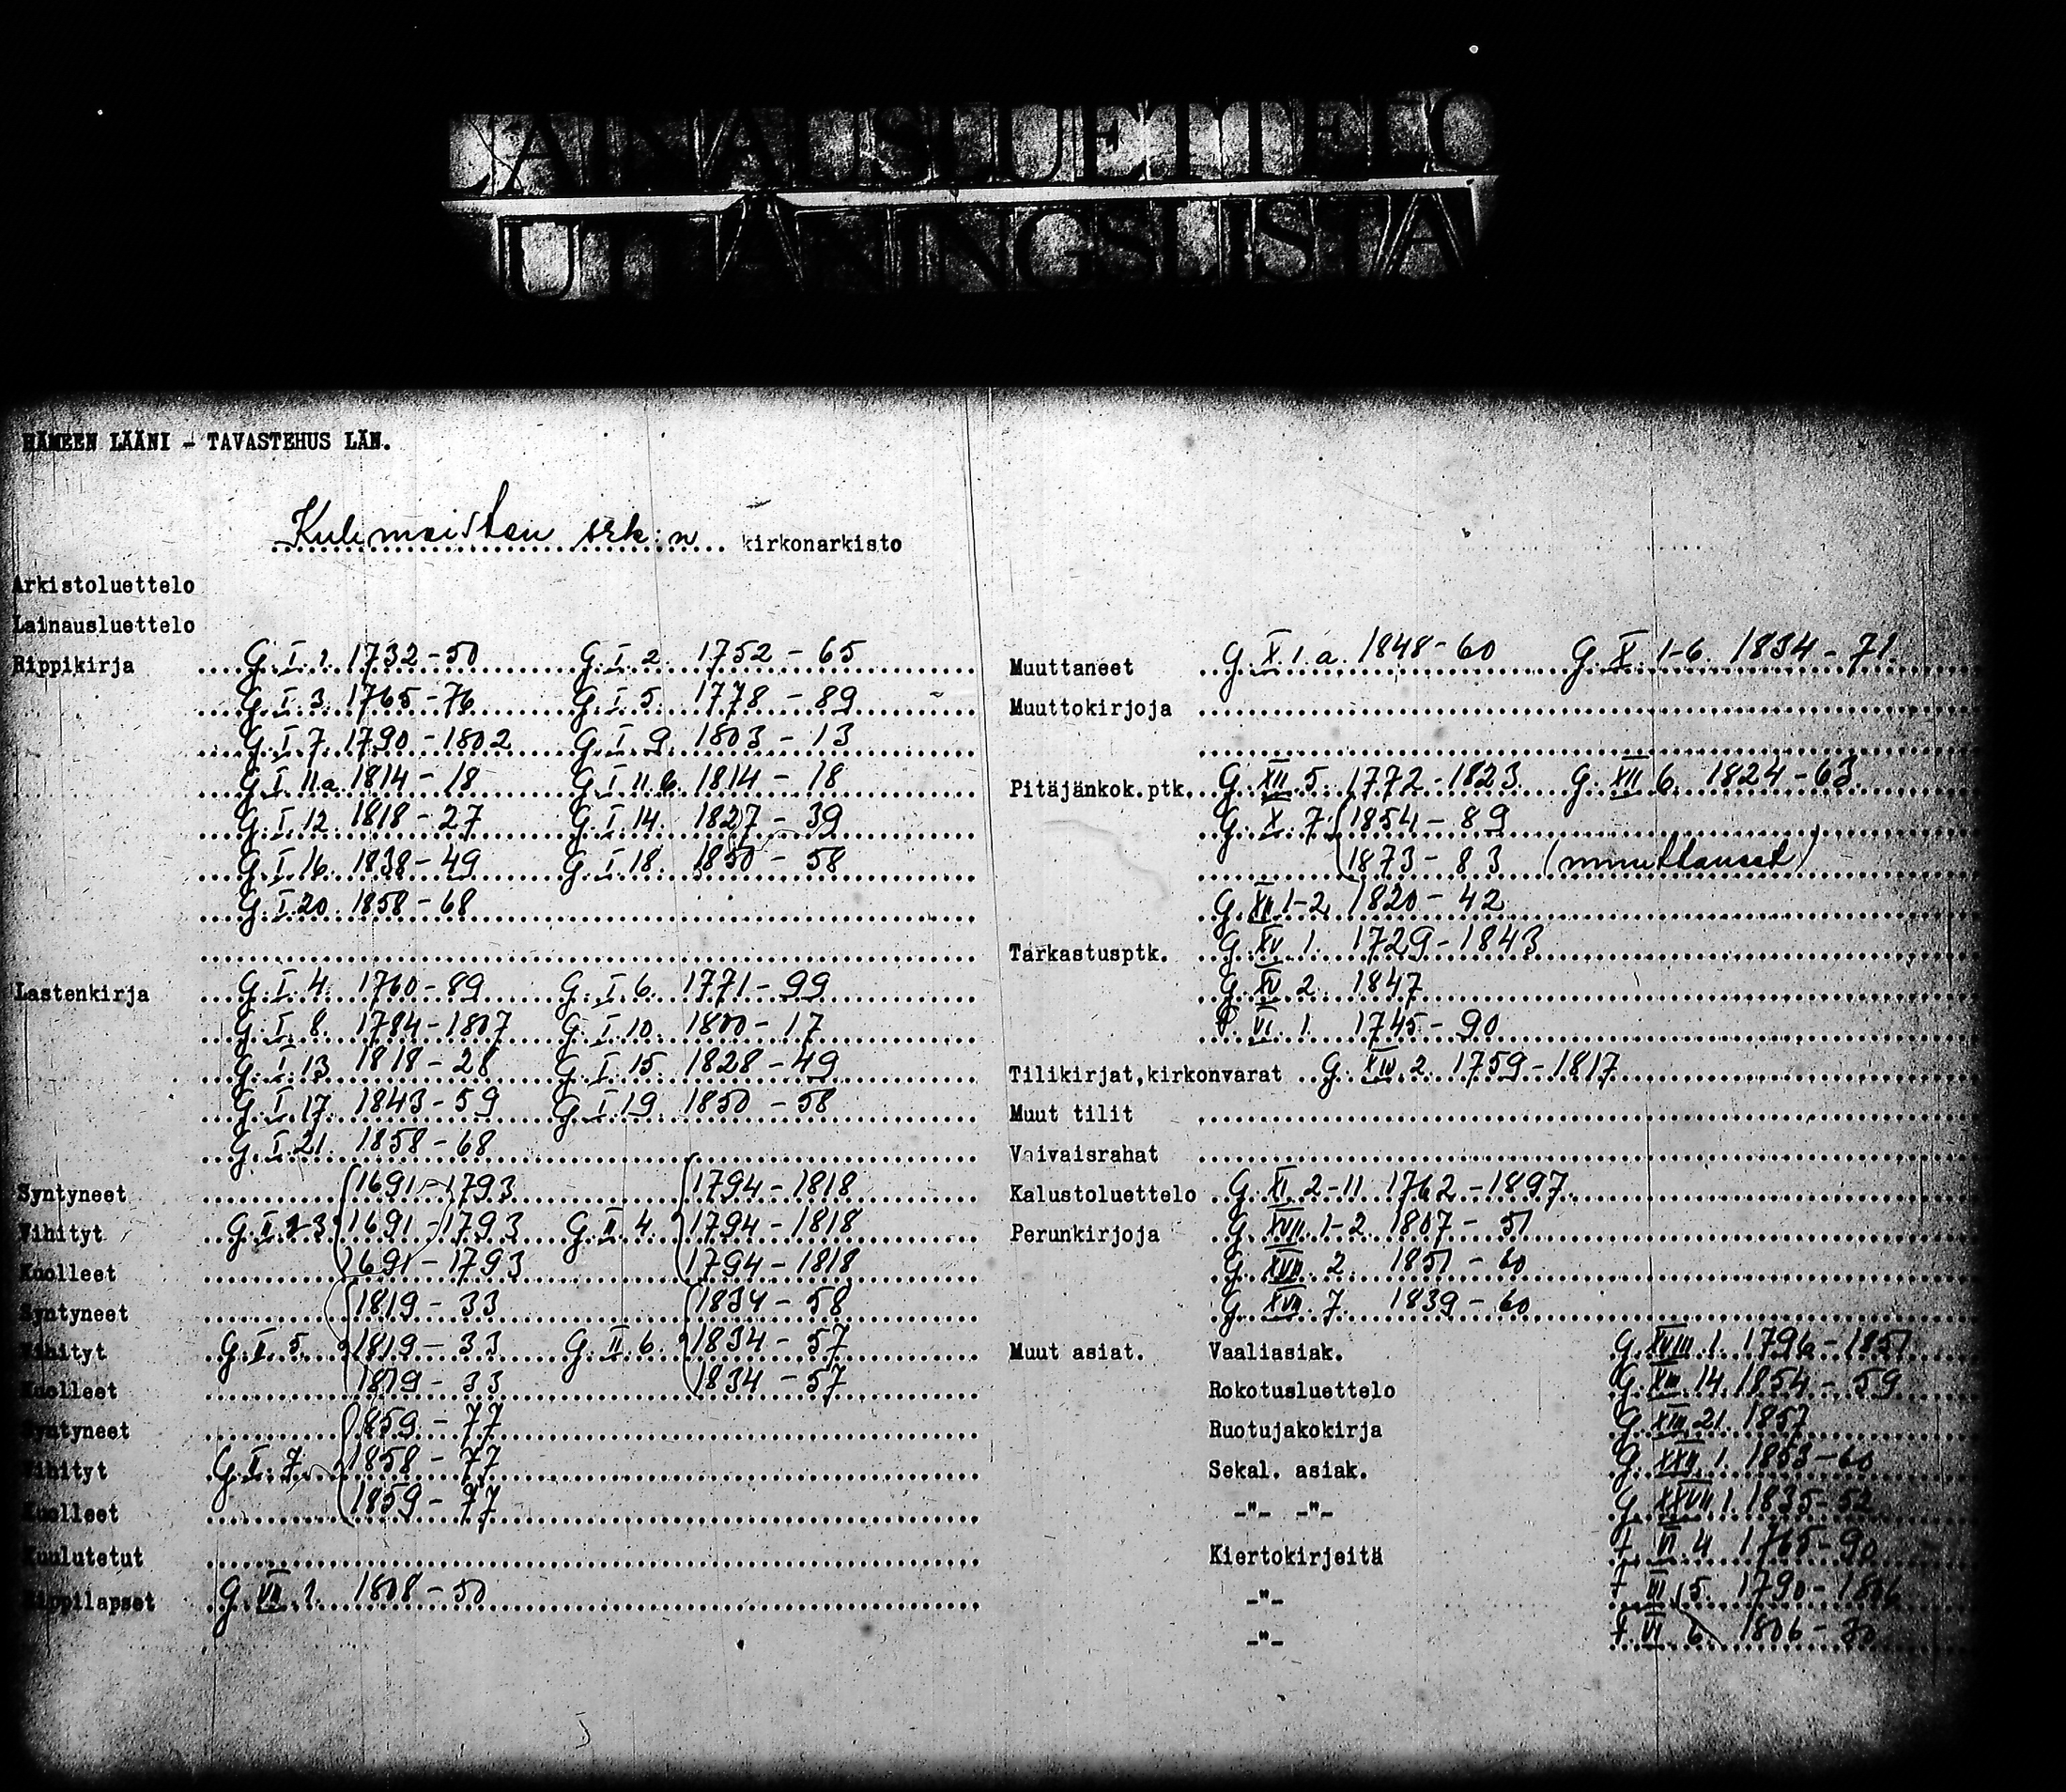 LAINAUSLUETTELO
UTLÅNINGSLISTA
HÄMEEN LÄÄNI - TAVASTEHUS LÄN.
Kuhmoisten srk:n kirkonarkisto
Arkistoluettelo
Lainausluettelo
Rippikirja G.I.1. 1732-50 G.I.2. 1752-65
G.I.3. 1765-76 G.I.5. 1778-89
G.I.7. 1790-1802 G.I.9. 1803-13
G.I.11a. 1814-18 G.I.11.b. 1814-18
G.I.12. 1818-27 G.I.14. 1827-39
G.I.16. 1838-49 G.I.18. 1850-58
G.I.20. 1858-68
Lastenkirja G.I.4. 1760-89 G.I.6. 1771-99
G.I.8. 1784-1807 G.I.10. 1800-17
G.I.13 1818-28 G.I.15. 1828-49
G.I.17. 1843-59 G.I.19. 1850-58
G.I.21. 1858-68
Syntyneet 1691-1793 1794-1818
Vihityt G.II.1-3 1691-1793 G.II.4. 1794-1818
Kuolleet 1691-1793 1794-1818
Syntyneet 1819-33 1834-58
Vihityt G.II.5. 1819-33 G.II.6. 1834-57
Kuolleet 1819-33 1834-57
Syntyneet 1859-77
Vihityt G.II.7. 1858-77
Kuolleet 1859-77
Kuulutetut
Rippilapset G.VII.1. 1808-50
Muuttaneet G.X.1.a. 1848-60 G.X.1-6. 1834-71.
Muuttokirjoja
Pitäjänkok.ptk. G.XII.5. 1772-1823. G.XII.6. 1824-63.
G.X.7. 1854-89
1873-83 (muuttaneet)
G.XII.1-2. 1820-42
Tarkastusptk. G.XV.1. 1729-1843
G.XV.2. 1847
VI.1. 1745-90
Tilikirjat,kirkonvarat G.XIV.2. 1759-1817
Muut tilit
Vaivaisrahat
Kalustoluettelo G.XI.2-11. 1762-1897.
Perunkirjoja G.XVII.1-2. 1807-51
G.XVII.2. 1851-60
G.XVII.7. 1839-60
Muut asiat. Vaaliasiak. G.XVIII.1. 1796-1851
Rokotusluettelo G.XIII.14. 1854-59
Ruotujakokirja G.XIII.21. 1857
Sekal. asiak. G.XXII.1. 1853-60
-"- -"- G.XXVII.1. 1835-52
Kiertokirjeitä VI.4. 1765-90
-"- 5. 1790-1806
-"- VI.6. 1806-30